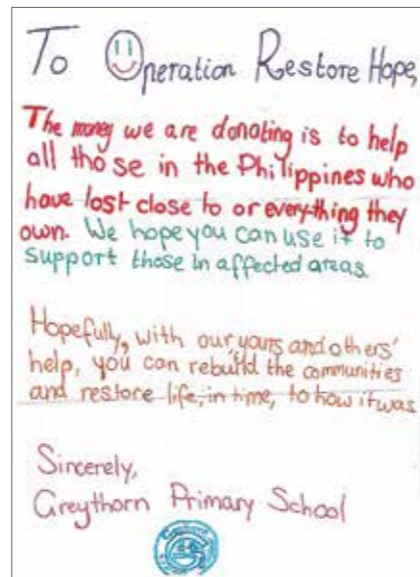 To Operation Restore Hope,
The money we are donating is to help
all those in the Philippines who
have lost close to or everything they
own. We hope you can use it to
support those in affected areas.
Hopefully, with our, yours and others'
help, you can rebuild the communities
and restore life, in time, to how it was
Sincerely,
Greythorn Primary School